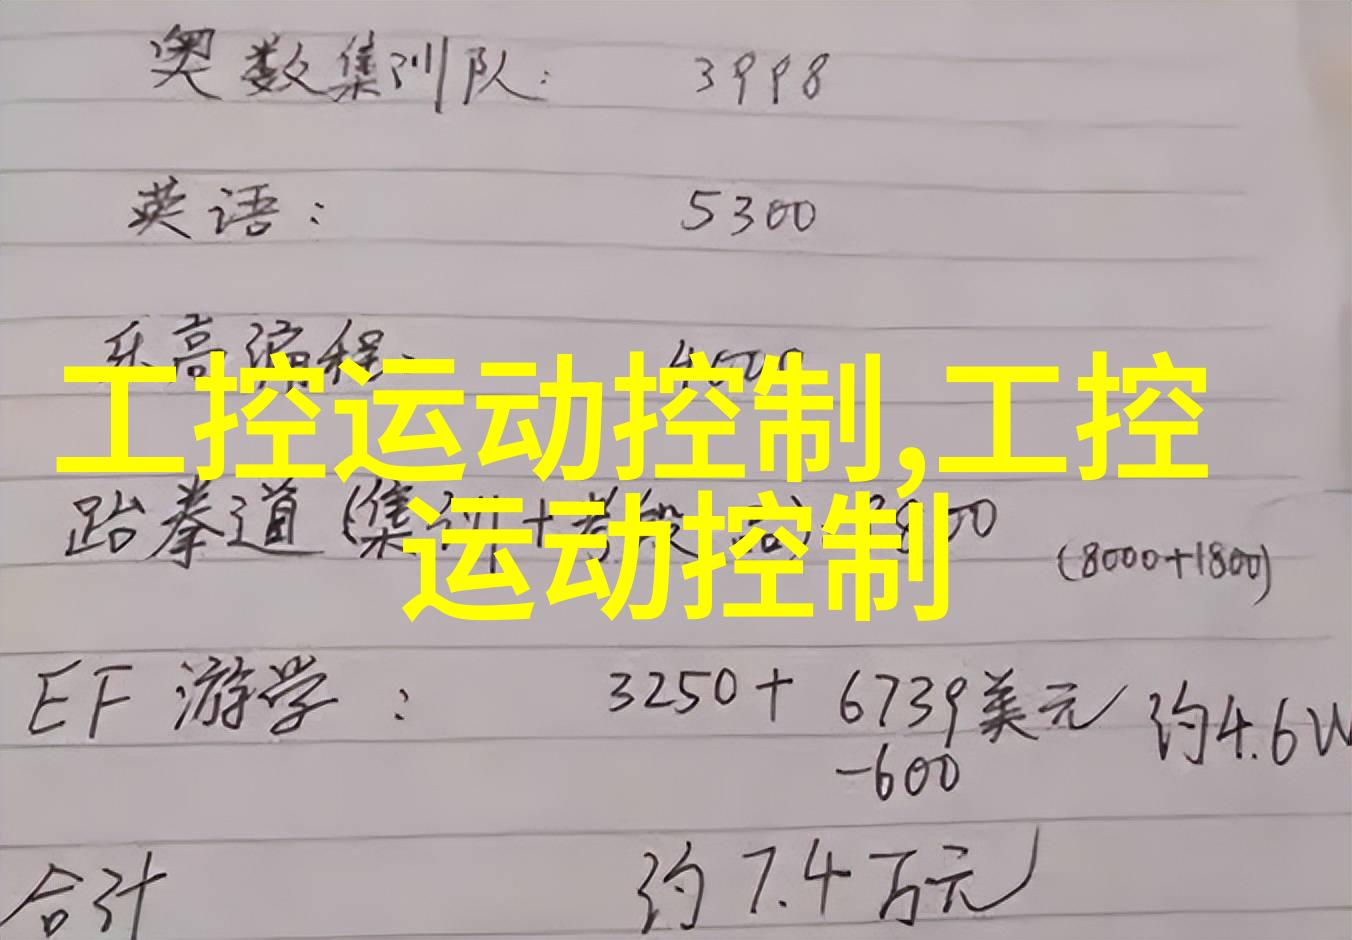 奥数集训队: 3998
英语: 5300
乐高编程: 4000
工控运动控制,工控
运动控制
跆拳道 (集训+考段 3800
(8000+1800)
EF 游学: 3250+6739美元 约4.6W
-600
合计 约7.4万元